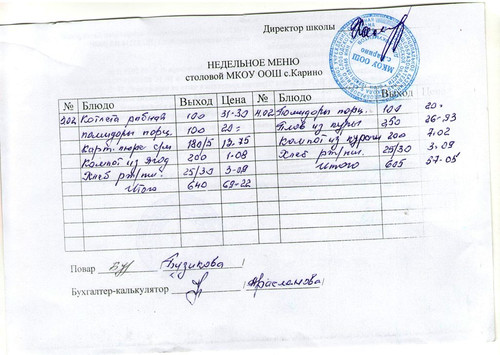 Директор школы
МКОУ ООШ
с.Карино
НЕДЕЛЬНОЕ МЕНЮ
столовой МКОУ ООШ с.Карино
№ Блюдо Выход Цена № Блюдо Выход
Котлета рыбная 100 31-30 Помидоры порц. 100 20-
помидоры порц. 100 20- Плов из куры 250 26-93
Карт. пюре с/м 180/5 12-75 Компот из кураги 200 7.02
Компот из ягод 200 1-08 Хлеб рж/пш. 25/30 3-09
Хлеб рж/пш. 25/30 3-09 Итого 605 57-05
Итого 640 69-22
Повар Бузикова
Бухгалтер-калькулятор Арасланова